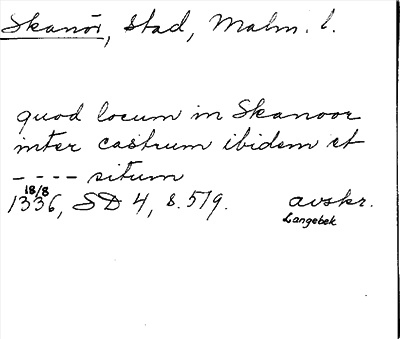 Skanör, stad, Malm. l.
quod locum in Skanoor
inter castrum ibidem et
---- situm
18/8
1336, SD 4, s. 519. avskr.
Langebek